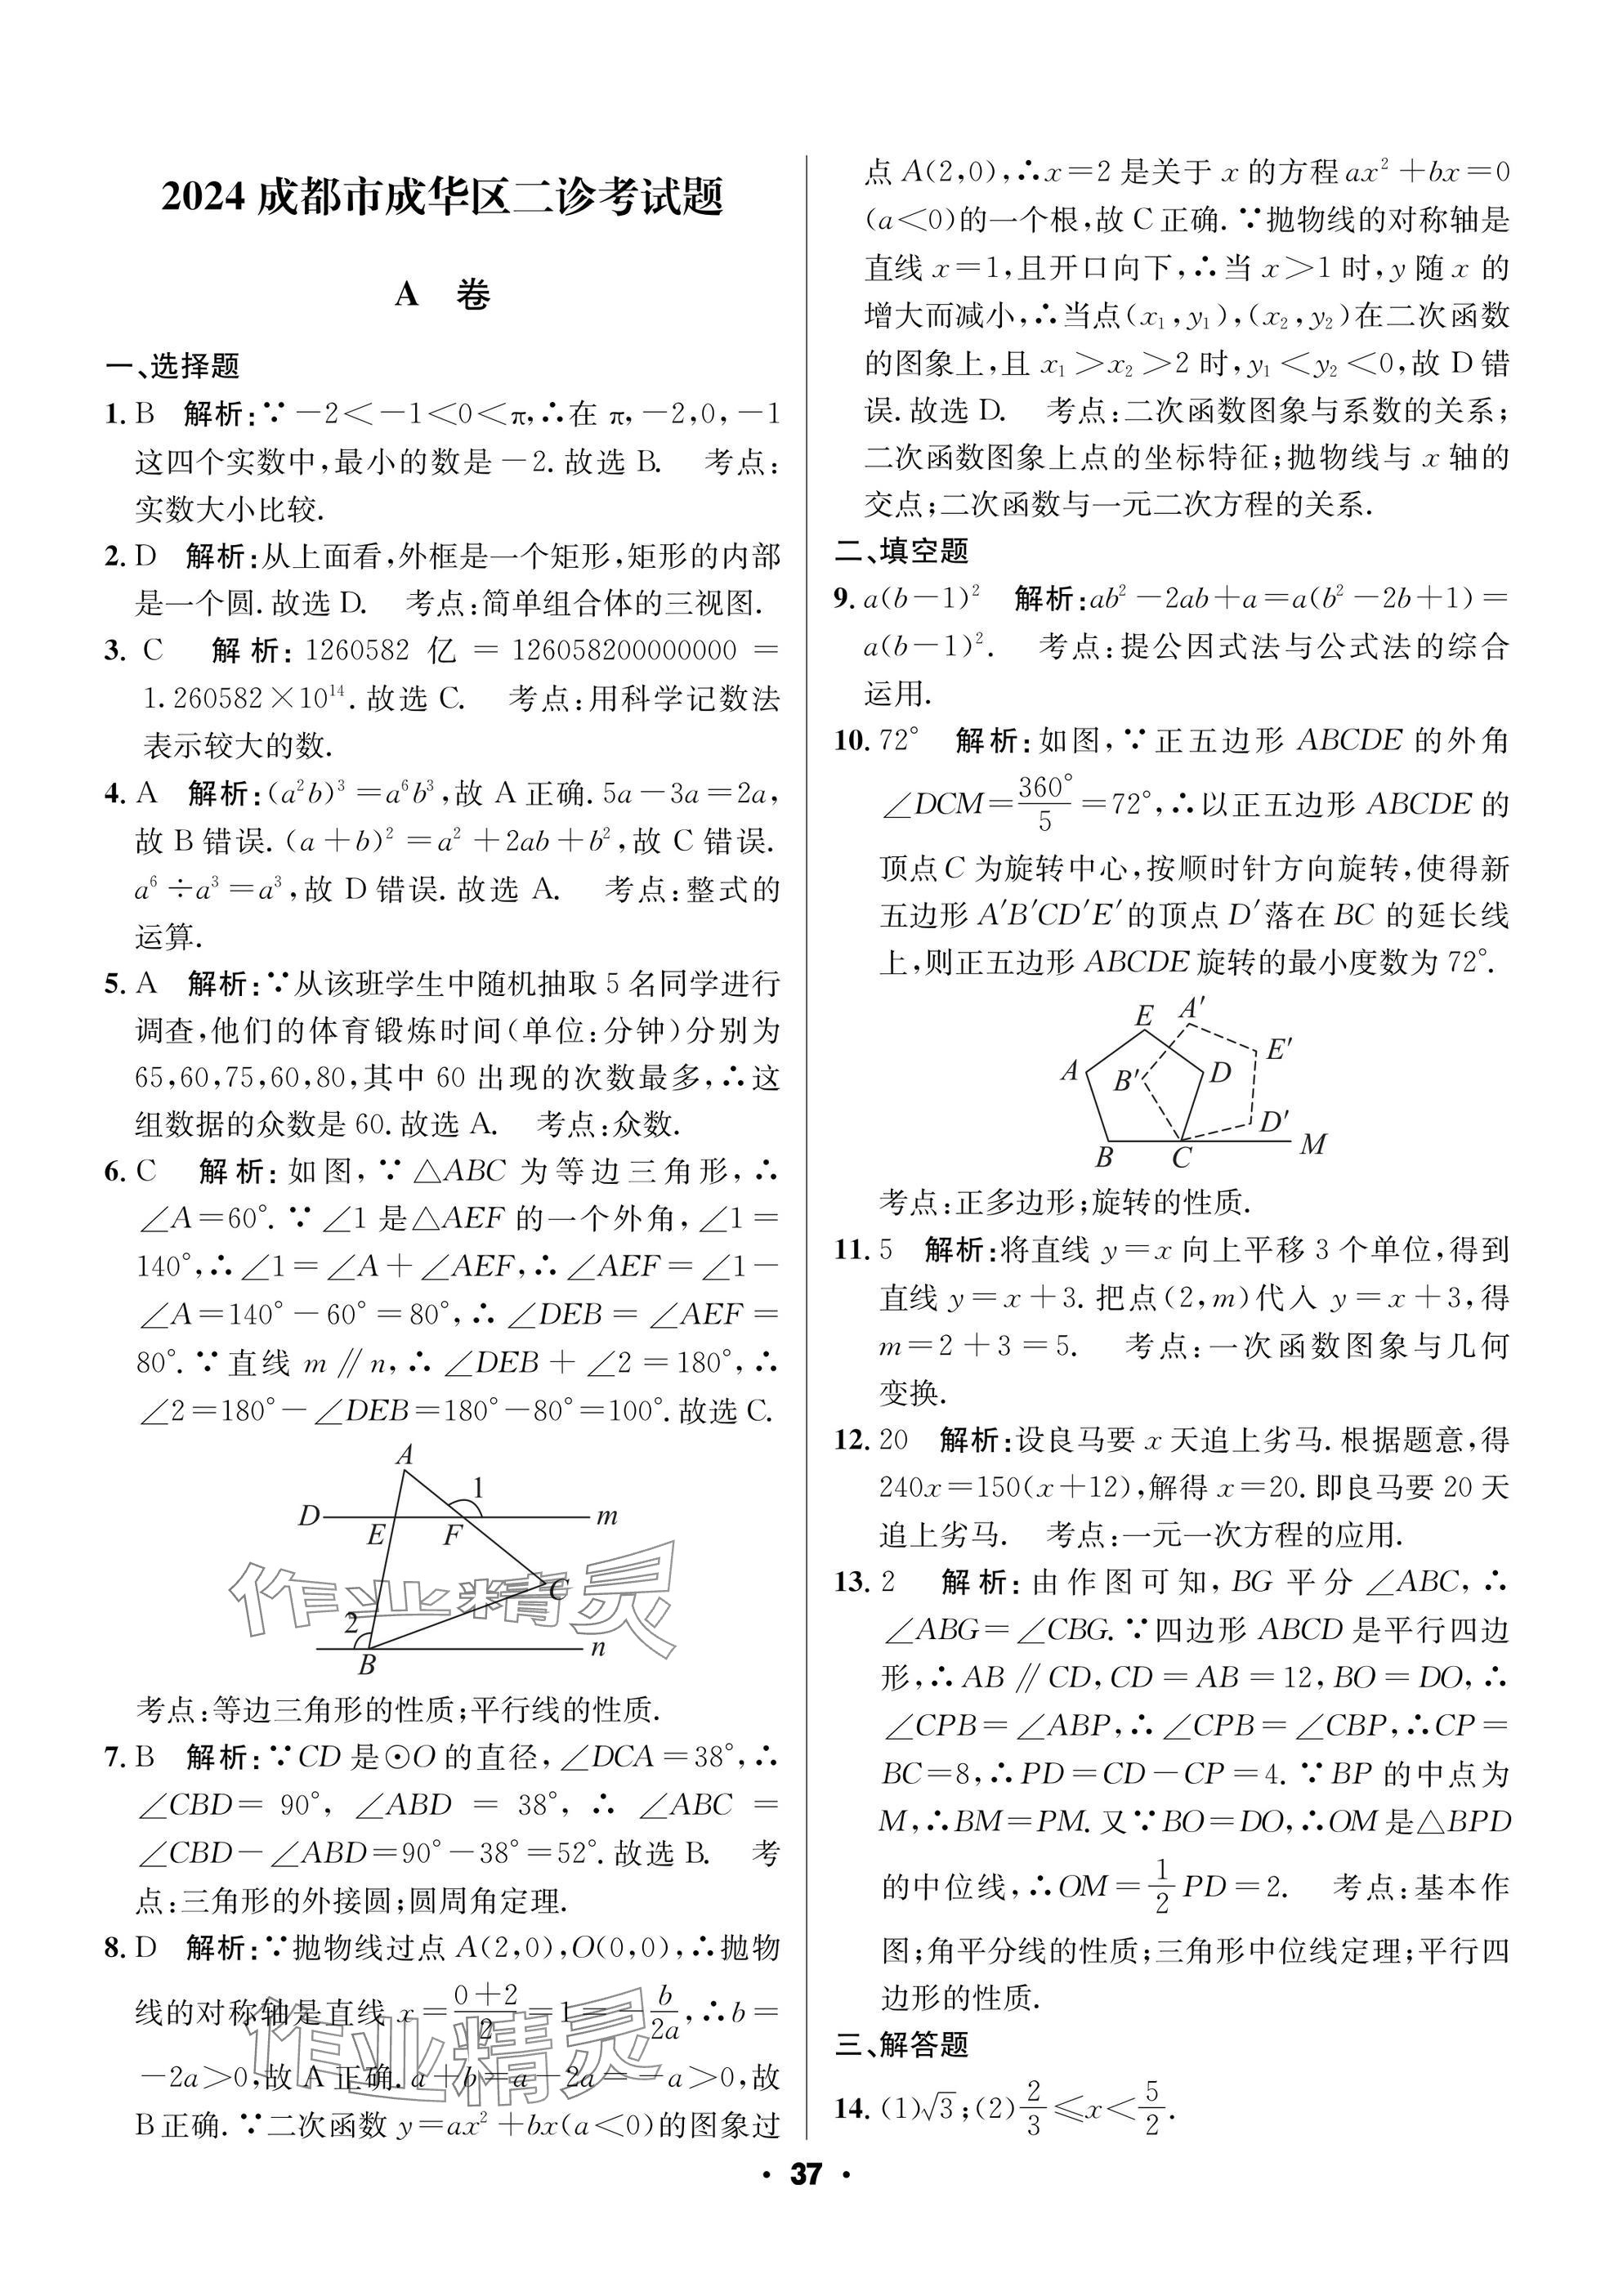 2024 成都市成华区二诊考试题
A 卷
一、选择题
1. B 解析:∵－2＜－1＜0＜π,∴在 π,－2,0,－1
这四个实数中,最小的数是－2.故选 B. 考点:
实数大小比较.
2. D 解析:从上面看,外框是一个矩形,矩形的内部
是一个圆.故选 D. 考点:简单组合体的三视图.
3. C 解析: 1260582 亿 ＝ 126058200000000 ＝
1.260582×10¹⁴.故选 C. 考点:用科学记数法
表示较大的数.
4. A 解析:(a²b)³＝a⁶b³,故 A 正确.5a－3a＝2a,
故 B 错误.(a＋b)²＝a²＋2ab＋b²,故 C 错误.
a⁶÷a³＝a³,故 D 错误.故选 A. 考点:整式的
运算.
5. A 解析:∵从该班学生中随机抽取 5 名同学进行
调查,他们的体育锻炼时间(单位:分钟)分别为
65,60,75,60,80,其中 60 出现的次数最多,∴这
组数据的众数是 60.故选 A. 考点:众数.
6. C 解析:如图,∵△ABC 为等边三角形,∴
∠A＝60°.∵∠1 是△AEF 的一个外角,∠1＝
140°,∴∠1＝∠A＋∠AEF,∴∠AEF＝∠1－
∠A＝140°－60°＝80°,∴∠DEB＝∠AEF＝
80°.∵直线 m∥n,∴∠DEB＋∠2＝180°,∴
∠2＝180°－∠DEB＝180°－80°＝100°.故选 C.
A
1
D
m
E
F
C
2
n
B
作业精灵
考点:等边三角形的性质;平行线的性质.
7. B 解析:∵CD 是⊙O 的直径,∠DCA＝38°,∴
∠CBD＝ 90°, ∠ABD ＝ 38°, ∴ ∠ABC ＝
∠CBD－∠ABD＝90°－38°＝52°.故选 B. 考
点:三角形的外接圆;圆周角定理.
8. D 解析:∵抛物线过点 A(2,0),O(0,0),∴抛物
线的对称轴是直线 x＝(0＋2)/2＝1＝－b/2a,∴b＝
－2a＞0,故 A 正确.a＋b＝a－2a＝－a＞0,故
B 正确.∵二次函数 y＝ax²＋bx(a＜0)的图象过
作业精灵
点 A(2,0),∴x＝2 是关于 x 的方程 ax²＋bx＝0
(a＜0)的一个根,故 C 正确.∵抛物线的对称轴是
直线 x＝1,且开口向下,∴当 x＞1 时,y 随 x 的
增大而减小,∴当点(x₁,y₁),(x₂,y₂)在二次函数
的图象上,且 x₁＞x₂＞2 时,y₁＜y₂＜0,故 D 错
误.故选 D. 考点:二次函数图象与系数的关系;
二次函数图象上点的坐标特征;抛物线与 x 轴的
交点;二次函数与一元二次方程的关系.
二、填空题
9. a(b－1)² 解析:ab²－2ab＋a＝a(b²－2b＋1)＝
a(b－1)². 考点:提公因式法与公式法的综合
运用.
10. 72° 解析:如图,∵正五边形 ABCDE 的外角
∠DCM＝360°/5＝72°,∴以正五边形 ABCDE 的
顶点 C 为旋转中心,按顺时针方向旋转,使得新
五边形 A′B′CD′E′的顶点 D′落在 BC 的延长线
上,则正五边形 ABCDE 旋转的最小度数为 72°.
E A′
E′
A B′ D
D′
B C M
考点:正多边形;旋转的性质.
11. 5 解析:将直线 y＝x 向上平移 3 个单位,得到
直线 y＝x＋3.把点(2,m)代入 y＝x＋3,得
m＝2＋3＝5. 考点:一次函数图象与几何
变换.
12. 20 解析:设良马要 x 天追上劣马.根据题意,得
240x＝150(x＋12),解得 x＝20.即良马要 20 天
追上劣马. 考点:一元一次方程的应用.
13. 2 解析:由作图可知,BG 平分∠ABC,∴
∠ABG＝∠CBG.∵四边形 ABCD 是平行四边
形,∴AB∥CD,CD＝AB＝12,BO＝DO,∴
∠CPB＝∠ABP,∴∠CPB＝∠CBP,∴CP＝
BC＝8,∴PD＝CD－CP＝4.∵BP 的中点为
M,∴BM＝PM.又∵BO＝DO,∴OM 是△BPD
的中位线,∴OM＝1/2 PD＝2. 考点:基本作
图;角平分线的性质;三角形中位线定理;平行四
边形的性质.
三、解答题
14. (1)√3;(2)2/3≤x＜5/2.
· 37 ·